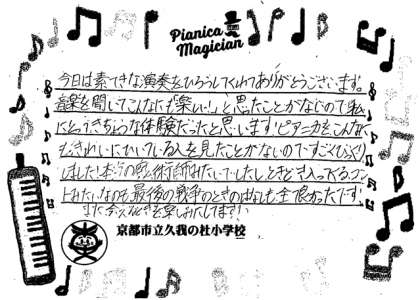 Pianica
Magician
今日は素てきな演奏をひろうしてくれてありがとうございます。
音楽を聞いてこんなにも楽しい!と思ったことがないので私
にとってきちょうな体験だったと思います!ピアニカをこんなに
もきれいにひいている人を見たことがないのですごくびっくり
しました!本当の魔術師みたいでしたしときどき入ってるコン
トみたいなのも最後の戦争のときのはなしも全部良かったです。
また会えるときを楽しみにしてます!
京都市立久我の杜小学校